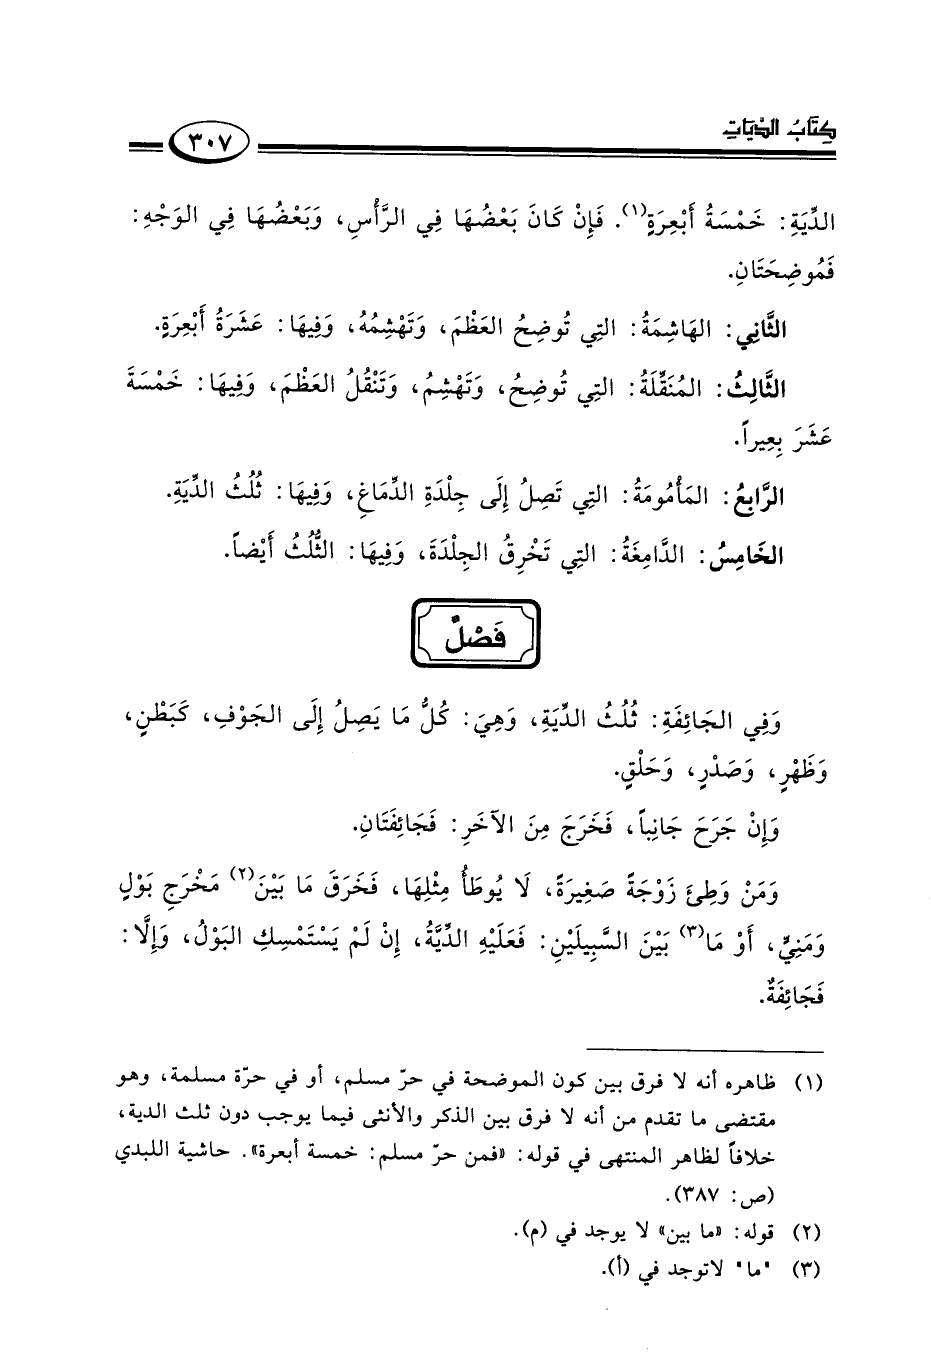 كِتَابُ الدِّيَاتِ
٣٠٧
الدِّيَةِ: خَمْسَةُ أَبْعِرَةٍ(١). فَإِنْ كَانَ بَعْضُهَا فِي الرَّأْسِ، وَبَعْضُهَا فِي الوَجْهِ:
فَمُوضِحَتَانِ.
الثَّانِي: الهَاشِمَةُ: التِي تُوضِحُ العَظْمَ، وَتَهْشِمُهُ، وَفِيهَا: عَشَرَةُ أَبْعِرَةٍ.
الثَّالِثُ: المُنَقِّلَةُ: التِي تُوضِحُ، وَتَهْشِمُ، وَتَنْقُلُ العَظْمَ، وَفِيهَا: خَمْسَةَ
عَشَرَ بِعِيراً.
الرَّابِعُ: المَأْمُومَةُ: التِي تَصِلُ إِلَى جِلْدَةِ الدِّمَاغِ، وَفِيهَا: ثُلُثُ الدِّيَةِ.
الخَامِسُ: الدَّامِغَةُ: التِي تَخْرِقُ الجِلْدَةَ، وَفِيهَا: الثُّلُثُ أَيْضاً.
فَصْلٌ
وَفِي الجَائِفَةِ: ثُلُثُ الدِّيَةِ، وَهِيَ: كُلُّ مَا يَصِلُ إِلَى الجَوْفِ، كَبَطْنٍ،
وَظَهْرٍ، وَصَدْرٍ، وَحَلْقٍ.
وَإِنْ جَرَحَ جَانِباً، فَخَرَجَ مِنَ الآخَرِ: فَجَائِفَتَانِ.
وَمَنْ وَطِئَ زَوْجَةً صَغِيرَةً، لَا يُوطَأُ مِثْلِهَا، فَخَرَقَ مَا بَيْنَ(٢) مَخْرَجِ بَوْلٍ
وَمَنِيٍّ، أَوْ مَا(٣) بَيْنَ السَّبِيلَيْنِ: فَعَلَيْهِ الدِّيَّةُ، إِنْ لَمْ يَسْتَمْسِكِ البَوْلُ، وَإِلَّا:
فَجَائِفَةٌ.
(١) ظاهره أنه لا فرق بين كون الموضحة في حرّ مسلم، أو في حرّة مسلمة، وهو
مقتضى ما تقدم من أنه لا فرق بين الذكر والأنثى فيما يوجب دون ثلث الدية،
خلافاً لظاهر المنتهى في قوله: «فمن حرّ مسلم: خمسة أبعرة». حاشية اللبدي
(ص: ٣٨٧).
(٢) قوله: «ما بين» لا يوجد في (م).
(٣) "ما" لاتوجد في (أ).